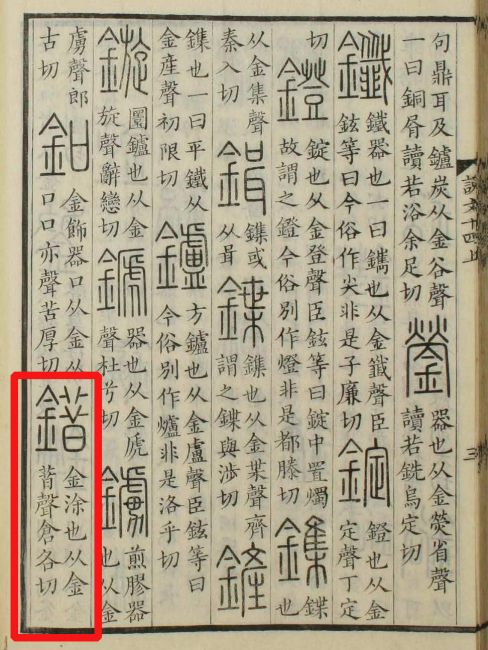 句鼎耳及鑪炭从金谷聲一曰銅屑讀若浴余足切鎣器也从金熒省聲讀若銑烏定切
鑯鐵器也一曰鐫也从金韱聲臣鉉等曰今俗作尖非是子廉切錠鐙也从金定聲丁定
切鐙錠也从金登聲臣鉉等曰錠中置燭故謂之鐙今俗別作燈非是都滕切鏶鍱也
从金集聲秦入切鍓鏶或从咠鍱鏶也从金枼聲齊謂之鍱與涉切鏟
鏶也一曰平鐵从金産聲初限切鑪方鑪也从金盧聲臣鉉等曰今俗別作爐非是洛乎切
鏇圜鑪也从金旋聲辭戀切䥶器也从金虒聲杜兮切鐪煎膠器也从金
虜聲郎古切釦金飾器口从金从口口亦聲苦厚切錯金涂也从金昔聲倉各切